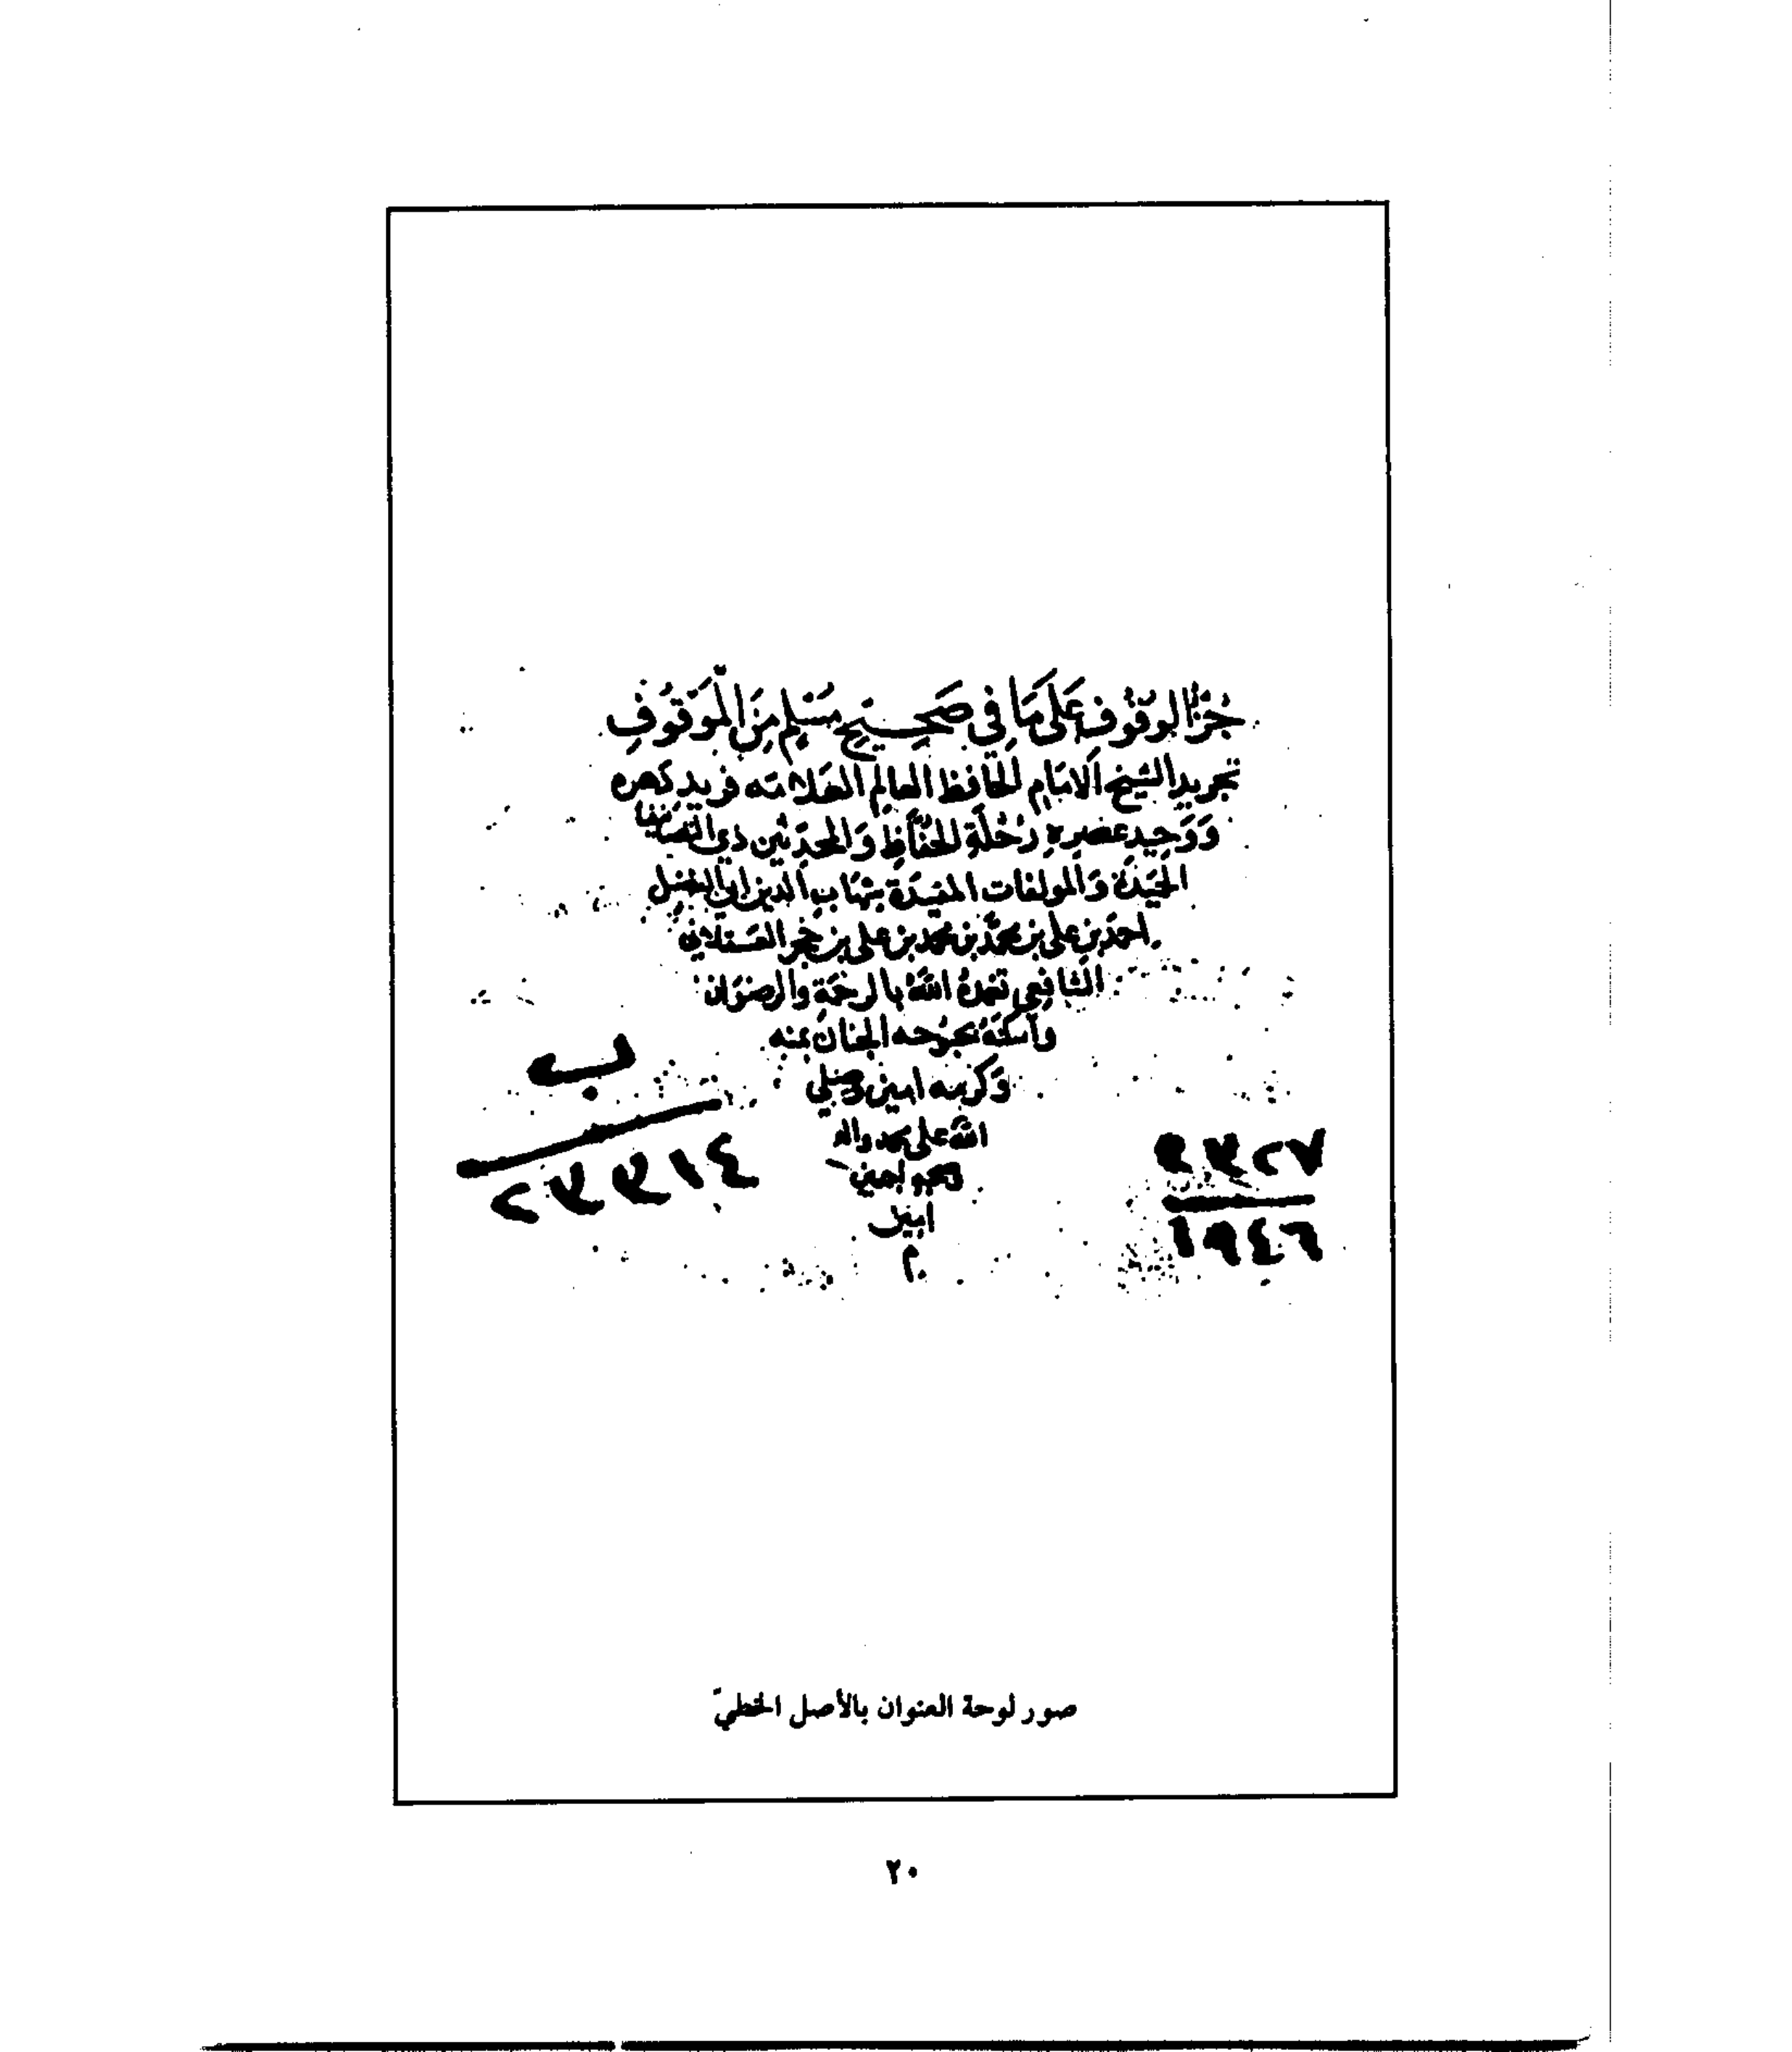 جُزْءُ الوقُوفِ عَلَى مَا فِى صَحِيحِ مُسْلِمٍ مِنَ الْمَوقُوفِ
تجريد الشيخ الامَامِ الحَافظ العالم العَلامَه فريد دهره
وَوَحِيد عَصْره رُحْلَةِ الحُفَّاظِ وَالمحدّثين ذى التصَانيف
الحَمِيدَة وَالمولفات المفيدَة شِهَاب الدين ابى الفضل
احمَد بن على بن محمّد بن محمد بن على بن حَجر العَسقلانى
الشافِعى تغمدهُ اللهُ بالرحمَة والرضوَان
وأسكنَهُ بحبُوحه الجنان بمنه
وَكرمه امين وصلى
الله على محمد واله
وصحبه اجمعين
امين
م
ب
٢٣٣١٤
٢٣٢٧
١٩٤٦
صور لوحة العنوان بالأصل الخطيّ
٢٠